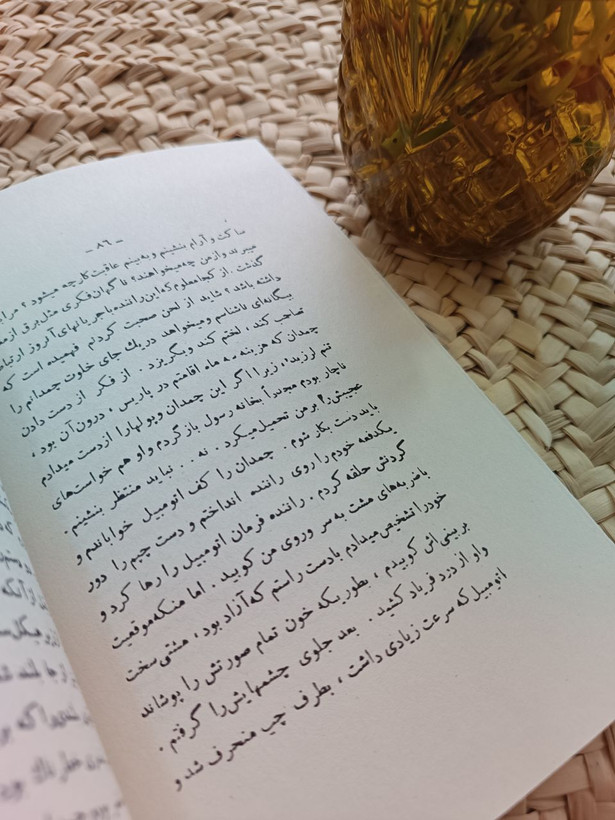 - ۸٦ -
ساکت و آرام بنشینم و به‌بینم عاقبت کار چه میشود؟ مرا
میبرند و از من چه میخواهند؟ ناگهان فکری مثل برق از
گذشت. از کجا معلوم که این راننده با جریانهای آنروز ارتباط
داشته باشد؟ شاید از لحن صحبت کردنم فهمیده است که
بیگانه‌ای ناشناسم و میخواهد در یك جای خلوت چمدانم را
صاحب کند، لختم کند و بگریزد. از فکر از دست دادن
چمدان که هزینه سه ماه اقامتم در پاریس، درون آن بود،
تنم لرزید؛ زیرا اگر این چمدان و پولهارا ازدست میدادم
ناچار بودم مجدداً بخانه رسول بازگردم و او هم خواست‌های
عجیبش را بر من تحمیل میکرد. نه... نباید منتظر بنشینم.
باید دست بکار شوم. چمدان را کف اتومبیل خواباندم و
یکدفعه خودم را روی راننده انداختم و دست چپم را دور
گردنش حلقه کردم. راننده فرمان اتومبیل را رها کرد و
با ضربه‌های مشت به سر و روی من کوبید. اما منکه موقعیت
خودرا تشخیص میدادم با دست راستم که آزاد بود، مشتی سخت
بر بینی‌اش کوبیدم، بطوریکه خون تمام صورتش را پوشاند
و او از درد فریاد کشید. بعد جلوی چشمهایش را گرفتم.
اتومبیل که سرعت زیادی داشت، بطرف چپ منحرف شد و